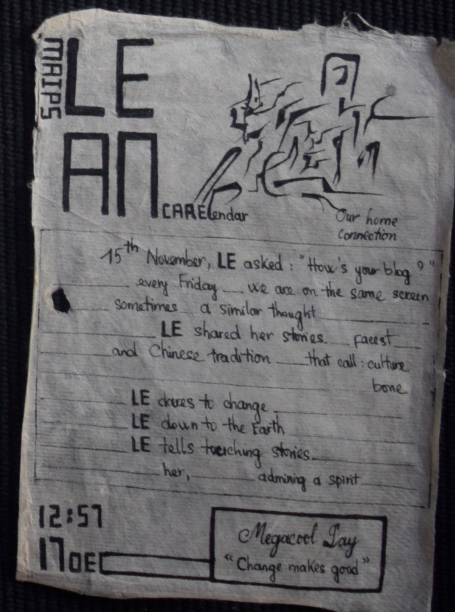 MAIPS
LE
AN
CARElendar
Our home
Connection
15th November, LE asked: "How's your blog?"
every Friday we are on the same screen
sometimes a similar thought
LE shared her stories facest
and Chinese tradition that call: culture
bone
LE dares to change
LE down to the Earth
LE tells touching stories
her, admiring a spirit
12:57
17DEC
Megacool Day
"Change makes good"